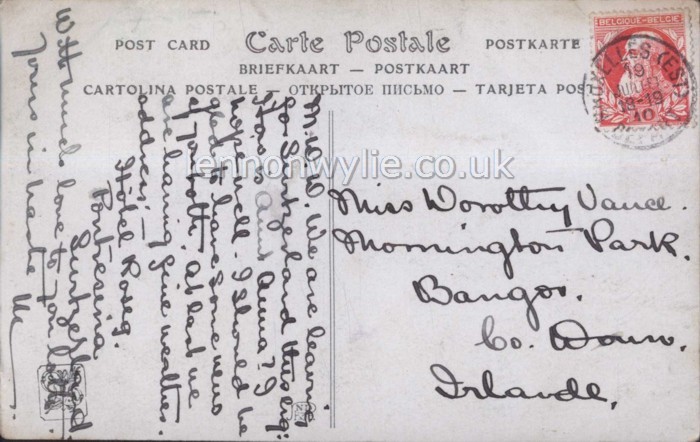 POST CARD Carte Postale POSTKARTE
BRIEFKAART — POSTKAART
CARTOLINA POSTALE — ОТКРЫТОЕ ПИСЬМО — TARJETA POST
BELGIQUE-BELGIE
BRUXELLES (EST)
19
18-19
10
lennonwylie.co.uk
Miss Dorothy Vance.
Mornington Park.
Bangor.
Co. Down.
Irlande.
We are leaving
for Switzerland this evg:
How is Aunt Anna? I
hope well. I should be
glad to have some news
of you both. At last we
are having fine weather.
address:—
Hôtel Roseg.
Pontresina
Switzerland.
With much love to you
Yours in haste
M